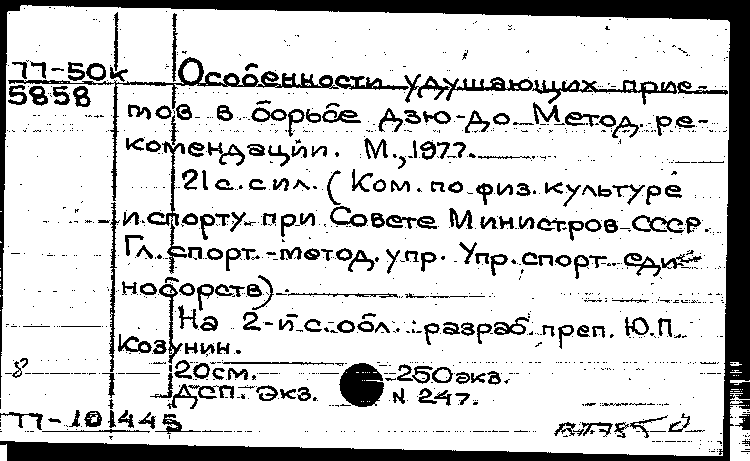 77-50к Особенности удушающих прие-
5858 мов в борьбе дзю-до. Метод. ре-
комендации. М., 1977.
21с. с ил. (Ком. по физ. культуре
и спорту при Совете Министров СССР.
Гл. спорт.-метод. упр. Упр. спорт. еди-
ноборств).
На 2-й с. обл.: разраб. преп. Ю.П.
Козунин.
8 20см. 250экз.
Дсп. экз. N 247.
77-101445